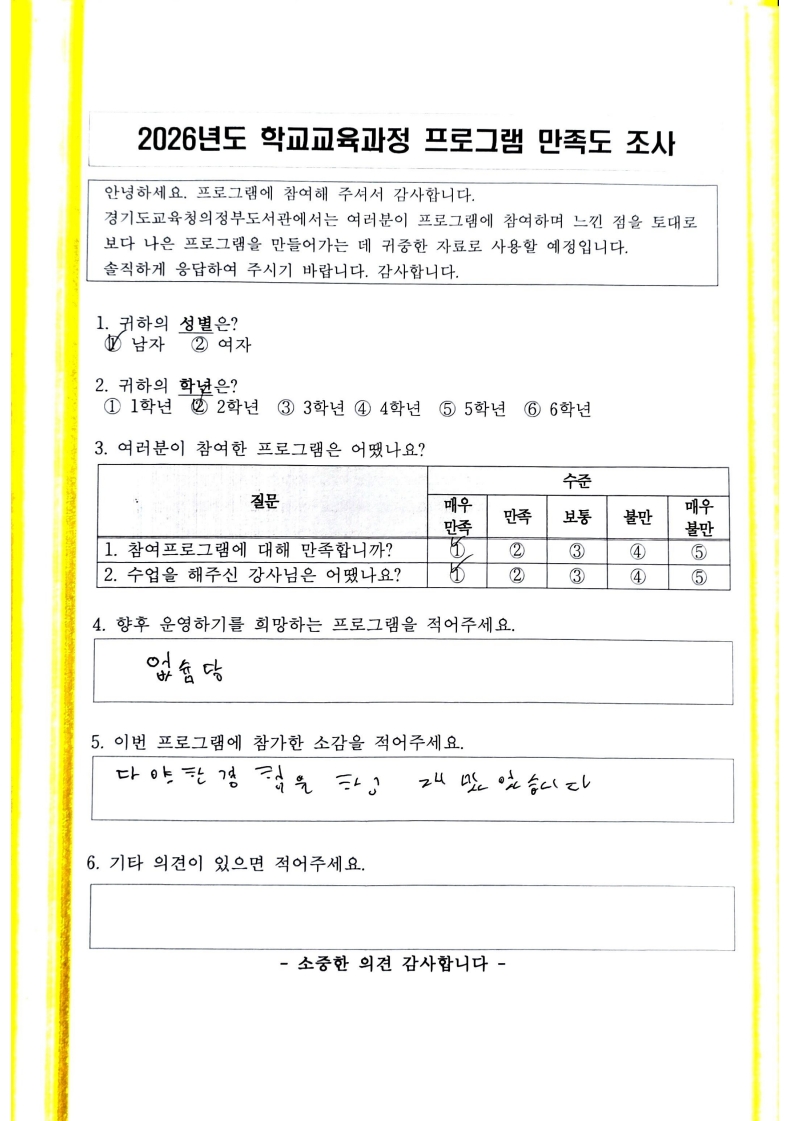 2026년도 학교교육과정 프로그램 만족도 조사
안녕하세요. 프로그램에 참여해 주셔서 감사합니다.
경기도교육청의정부도서관에서는 여러분이 프로그램에 참여하며 느낀 점을 토대로
보다 나은 프로그램을 만들어가는 데 귀중한 자료로 사용할 예정입니다.
솔직하게 응답하여 주시기 바랍니다. 감사합니다.
1. 귀하의 성별은?
① 남자 ② 여자
2. 귀하의 학년은?
① 1학년 ② 2학년 ③ 3학년 ④ 4학년 ⑤ 5학년 ⑥ 6학년
3. 여러분이 참여한 프로그램은 어땠나요?
질문 수준
매우 만족 만족 보통 불만 매우 불만
1. 참여프로그램에 대해 만족합니까? ① ② ③ ④ ⑤
2. 수업을 해주신 강사님은 어땠나요? ① ② ③ ④ ⑤
4. 향후 운영하기를 희망하는 프로그램을 적어주세요.
없슴당
5. 이번 프로그램에 참가한 소감을 적어주세요.
다양한 경험을 하고 재밌었습니다
6. 기타 의견이 있으면 적어주세요.
- 소중한 의견 감사합니다 -